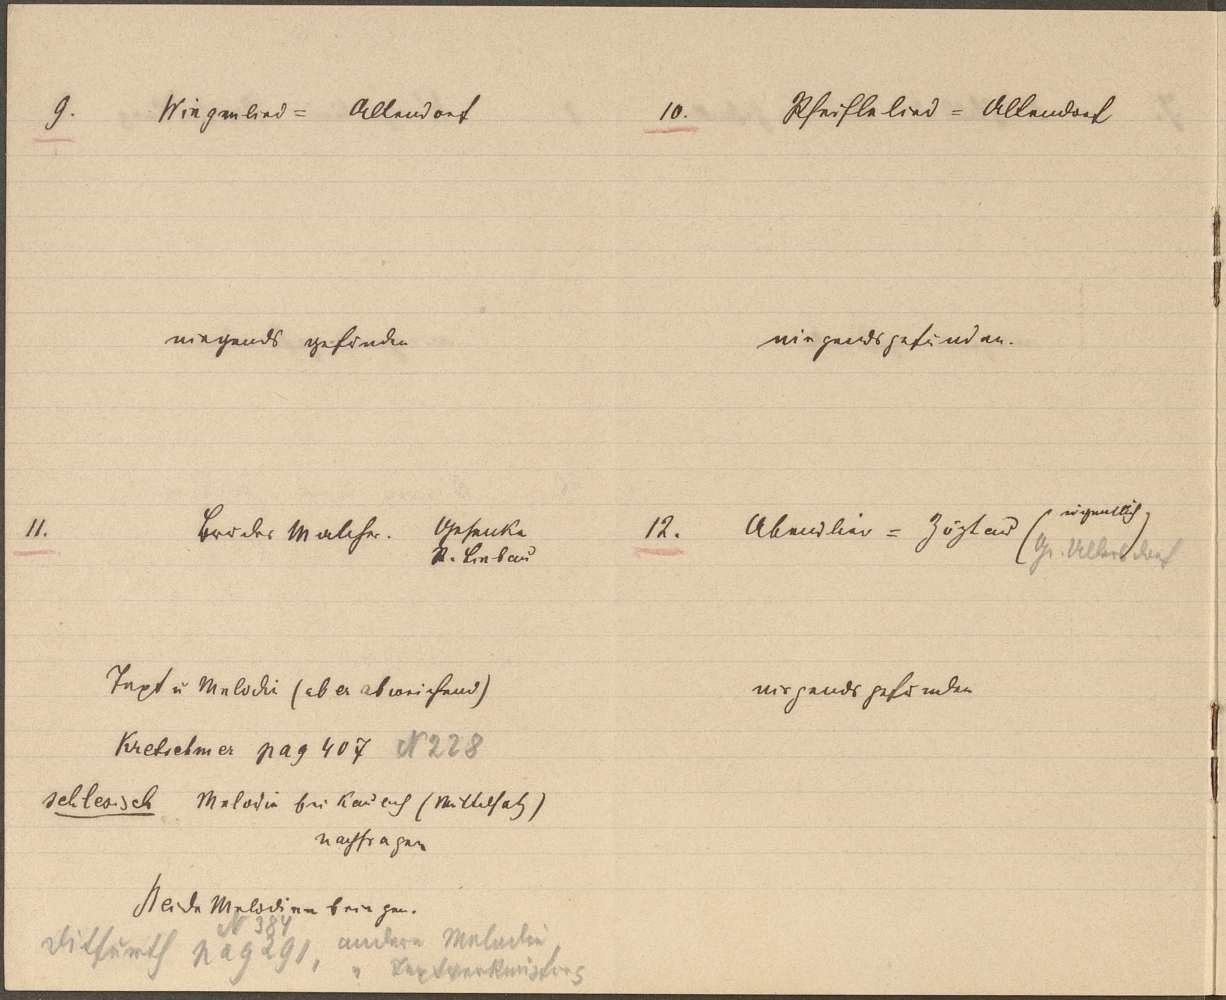 9. Wiegenlied = Altendorf
nirgends gefunden
10. Pfeiflelied = Altendorf
nirgends gefunden.
11. Bruder Malcher. Gesenke
R. Liebau
Text u Melodie (aber abweichend)
Kretschmer pag 407 N 228
schlesisch Melodie bei (Mittelsatz)
nachfragen
Beide Melodien bringen.
N 384
Ditfurth pag 291, andere Melodie
" Textverknüpfung
12. Abendlied = Zöptau (eigentlich)
Gr. Ullersdorf
nirgends gefunden